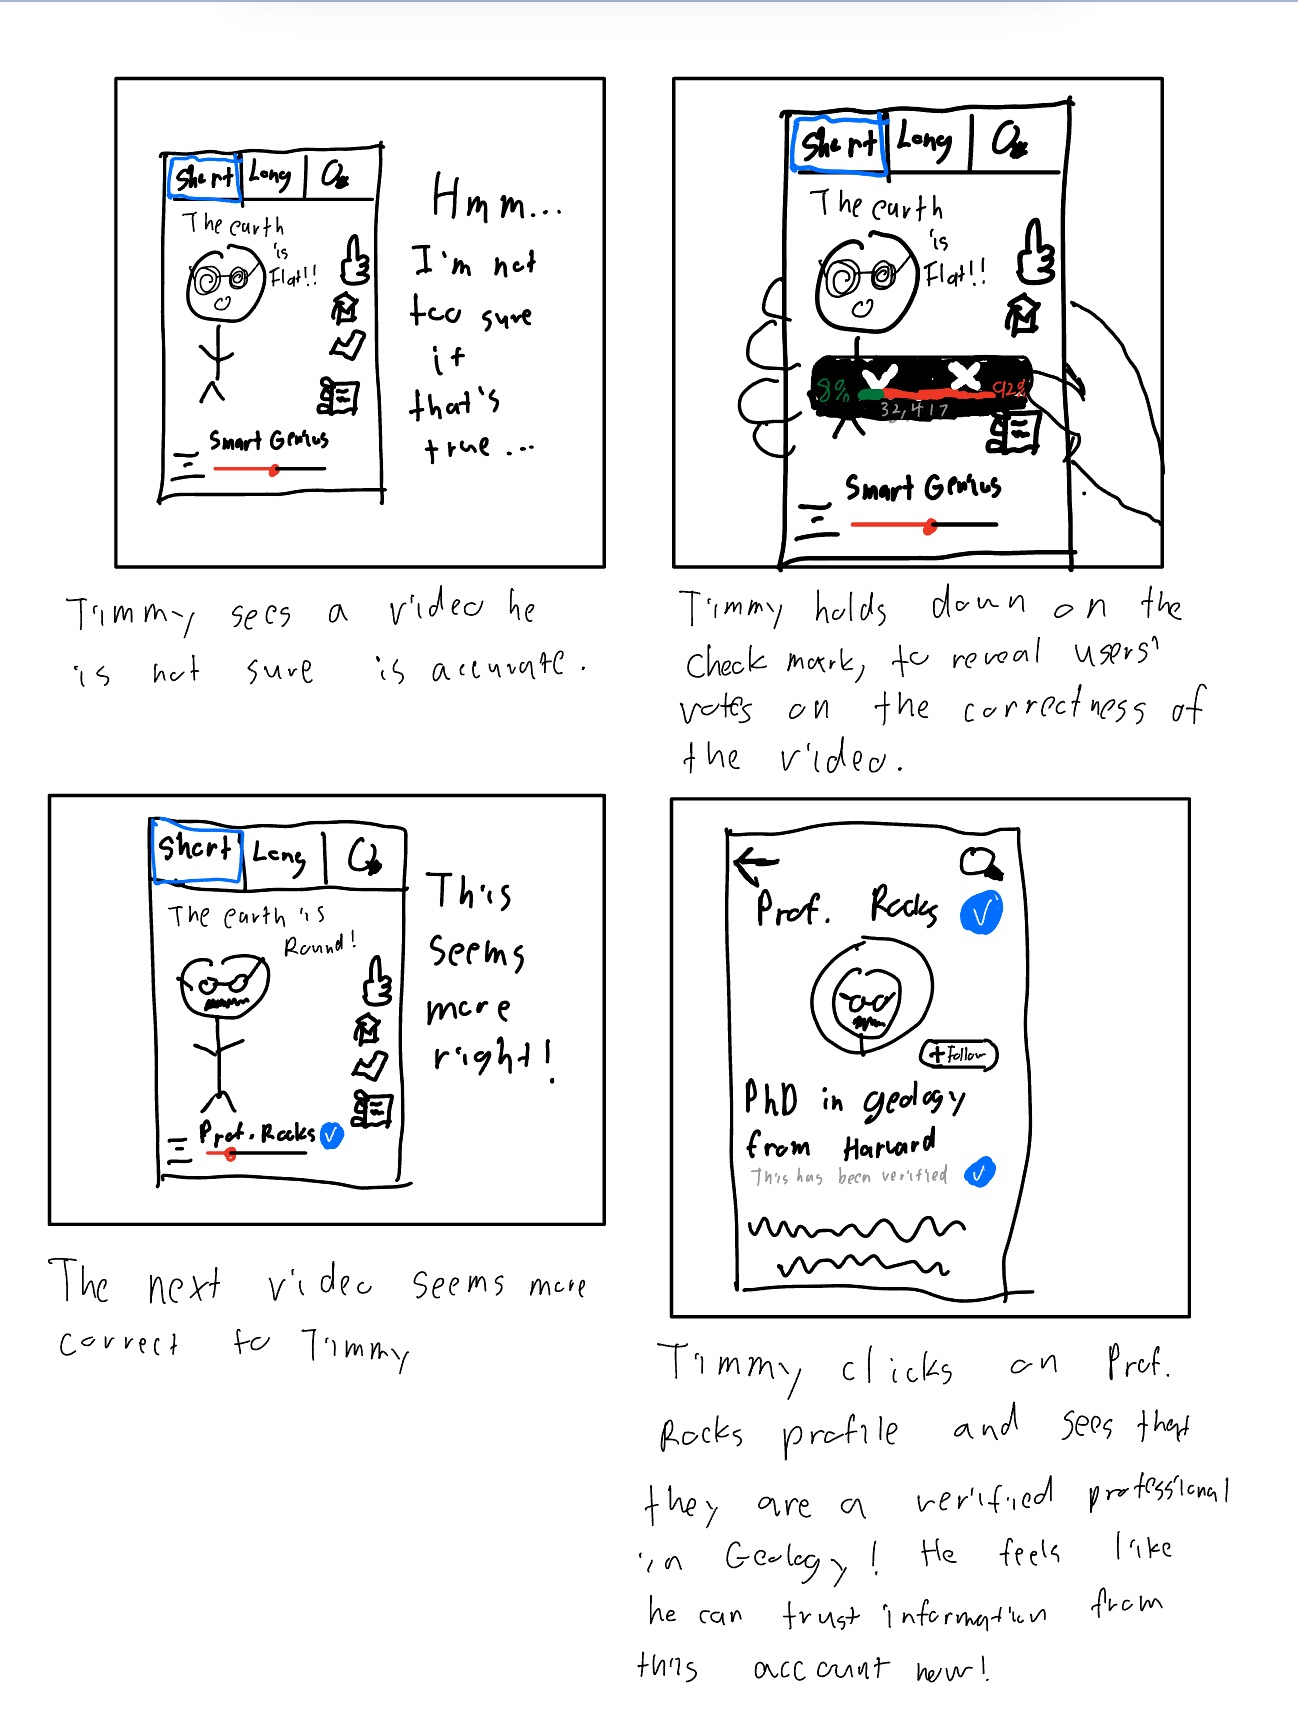 Short Long
The earth
is
Flat!!
Smart Genius
Hmm...
I'm not
too sure
if
that's
true...
Timmy sees a video he
is not sure is accurate.
Short Long
The earth
is
Flat!!
8% 92%
32,417
Smart Genius
Timmy holds down on the
check mark, to reveal users'
votes on the correctness of
the video.
Short Long
The earth is
Round!
Prof. Rocks
This
seems
more
right!
The next video seems more
correct to Timmy
Prof. Rocks
+Follow
PhD in geology
from Harvard
This has been verified
Timmy clicks on Prof.
Rocks profile and sees that
they are a verified professional
in Geology! He feels like
he can trust information from
this account now!